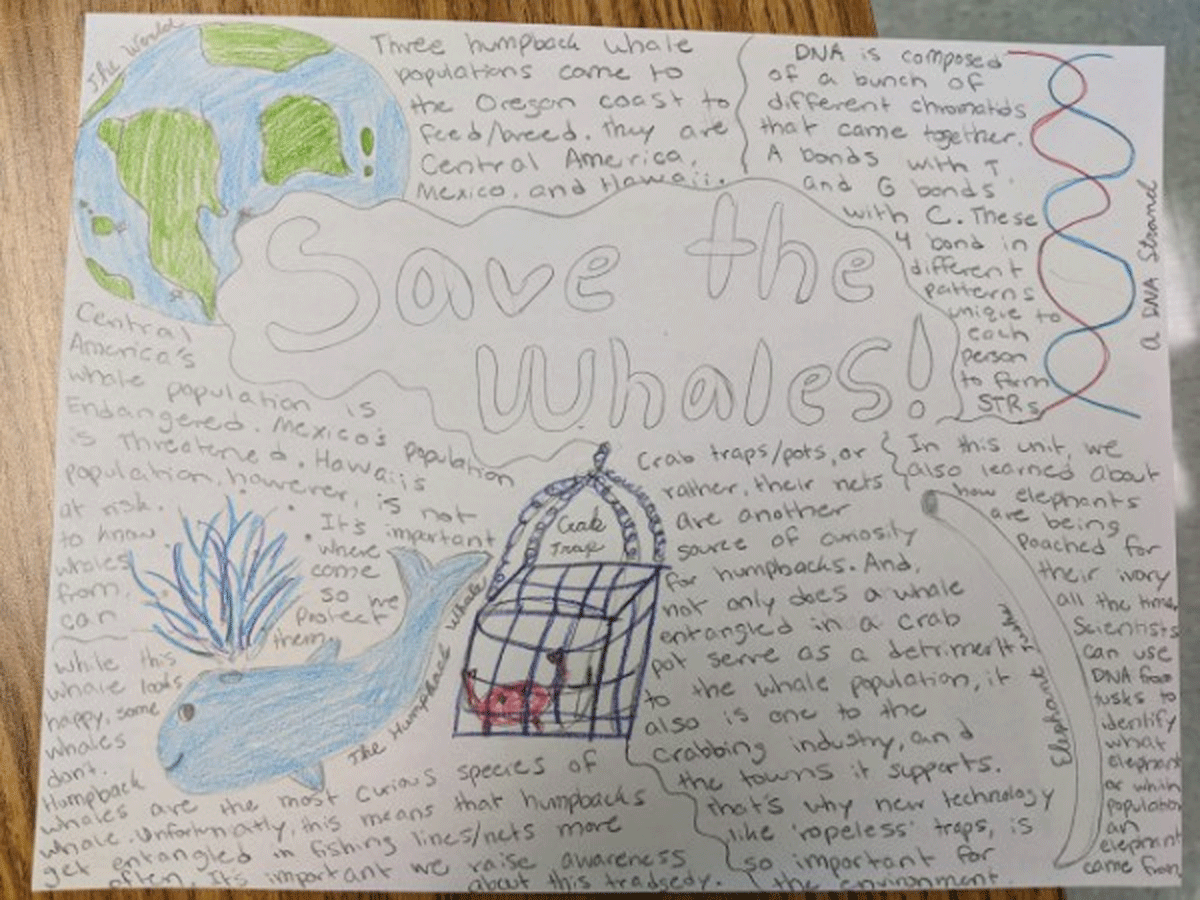 The World
Three humpback whale
populations come to
the Oregon coast to
feed/breed. They are
Central America,
Mexico, and Hawaii.
DNA is composed
of a bunch of
different chromatids
that came together.
A bonds with T
and G bonds
with C. These
4 bond in
different
patterns
unique to
each
person
to form
STRs
a DNA Strand
Save the
Whales!
Central
America's
whale population is
Endangered. Mexico's population
is Threatened. Hawaiis
population, however, is not
at risk. It's important
to know where
whales come
from, so we
can protect
them.
While this
whale looks
happy, some
whales
don't.
Humpback
whales are the most curious species of
whale. Unfortunatly, this means that humpbacks
get entangled in fishing lines/nets more
often. It's important we raise awareness
about this tradsedy.
The Humpback Whale
Crab
Trap
Crab traps/pots, or
rather, their nets
are another
source of curiosity
for humpbacks. And,
not only does a whale
entangled in a crab
pot serve as a detriment
to the whale population, it
also is one to the
crabbing industry, and
the towns it supports.
That's why new technology
like 'ropeless' traps, is
so important for
the environment.
In this unit, we
also learned about
how elephants
are being
poached for
their ivory
all the time,
Scientists
can use
DNA from
tusks to
identify
what
elephant
or which
population
an
elephant
came from
Elephant Tusk